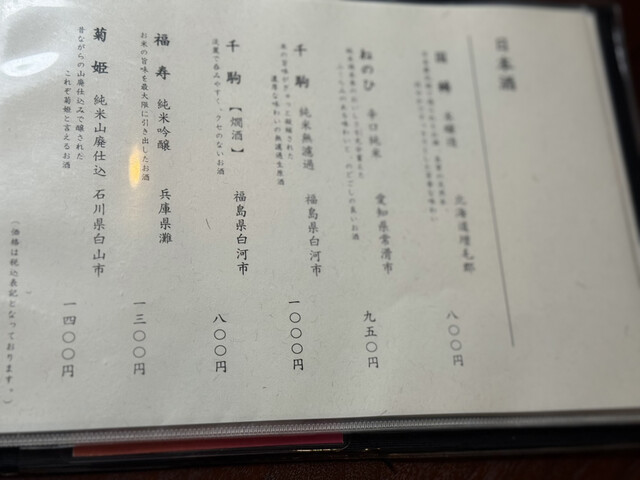 日本酒
国稀 本醸造 北海道増毛郡 八〇〇円
ねのひ 辛口純米 愛知県常滑市 九五〇円
千駒 純米無濾過 福島県白河市 一〇〇〇円
米の旨味がぎゅっと凝縮された
濃厚な味わいの無濾過生原酒
千駒 【燗酒】 福島県白河市 八〇〇円
淡麗で呑みやすく、クセのないお酒
福寿 純米吟醸 兵庫県灘 一三〇〇円
お米の旨味を最大限に引き出したお酒
菊姫 純米山廃仕込 石川県白山市 一四〇〇円
昔ながらの山廃仕込みで醸された
これぞ菊姫と言えるお酒
（価格は税込表記となっております。）